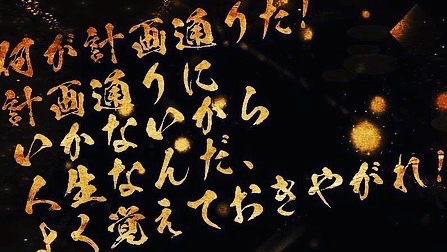 何が計画通りだ！
計画通りに
いかないから
人生なんだ、
よく覚えておきやがれ！